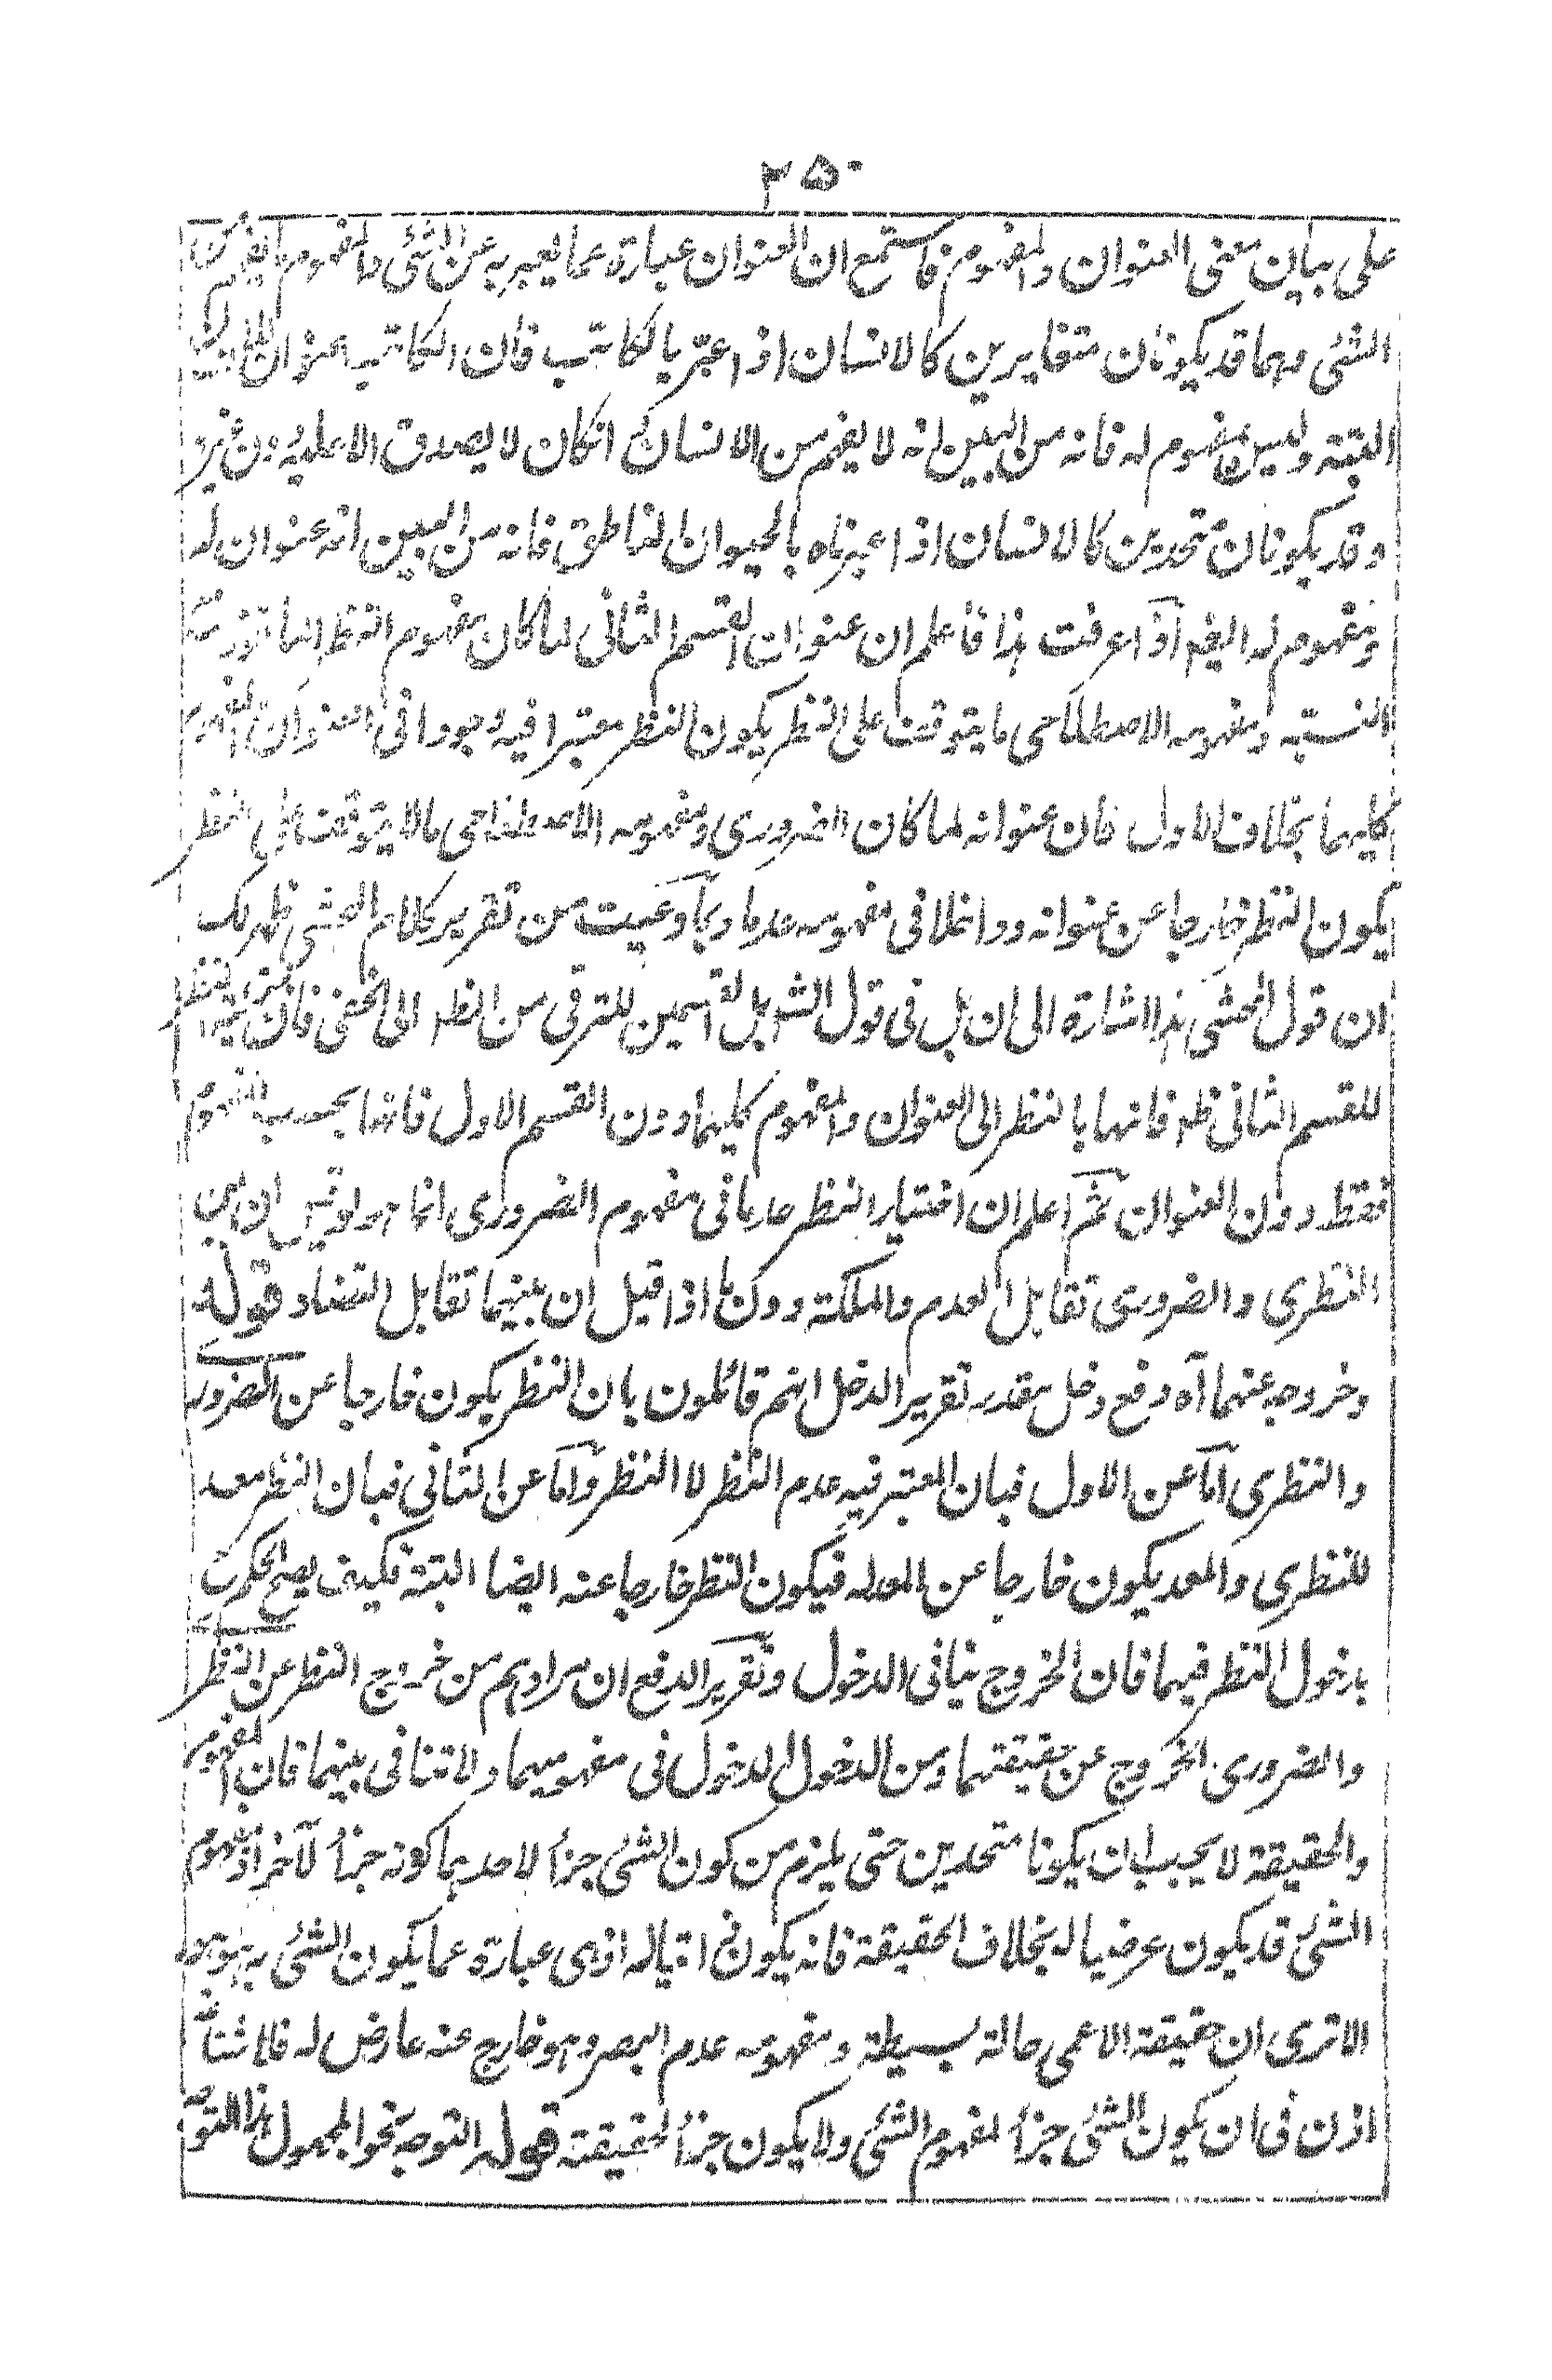 ٢٥٠
على بيان معنى العنوان والمفهوم فاستمع ان العنوان عبارة عما يعبر به عن الشئ والمفهوم ما يفهم من
الشئ وهما قد يكونان متغايرين كالانسان اذا عبّر بالكاتب فان الكاتب عنوان للانسان
البتة وليس بمفهوم له فانه من البين انه لا يفهم من الانسان وان كان لا يصدق الا عليه دون غيره
وقد يكونان متحدين كالانسان اذا عبرناه بالحيوان الناطق فانه من البين انه عنوان له
ومفهوم له ايضا اذا عرفت هذا فاعلم ان عنوان القسم الثانى لما كان مفهوم النظر الماخوذ منه
النسبته ومفهومه الاصطلاحى ما يتوقف على النظر يكون النظر معتبرا فيه وجودا فى العنوان والمفهوم
كليهما بخلاف الاول فان عنوانه لما كان الضرورى ومفهومه الاصطلاحى ما لا يتوقف على النظر
يكون النظر خارجا عن عنوانه وداخلا فى مفهومه عدما وبما وعيت من تقرير كلام المحشى ظهر لك
ان قول المحشى هذا اشارة الى ان بل فى قول الش بل القسمين للترقى من الظ الى الخفى فان النظر
للقسم الثانى ظ فانها بالنظر الى العنوان والمفهوم كليهما دون القسم الاول فانها بحسب المفهوم
فقط دون العنوان ثم اعلم ان اختيار النظر عدما فى مفهوم الضرورى انما هو لو قيل ان بين
النظرى والضرورى تقابل العدم والملكة دون ما اذا قيل ان بينهما تقابل التضاد قوله
وخروجه عنهما آه دفع دخل مقدر تقرير الدخل انهم قائلون بان النظر يكون خارجا عن الضرورى
والنظرى اما عن الاول فبان المعتبر فيه عدم النظر لا النظر واما عن الثانى فبان النظر معد
للنظرى والمعد يكون خارجا عن المعد له فيكون النظر خارجا عنه ايضا البتة فكيف يصح الحكم
بدخول النظر فيهما فان الخروج ينافى الدخول وتقرير الدفع ان مرادهم من خروج النظر عن النظرى
والضرورى الخروج عن حقيقتهما ومن الدخول الدخول فى مفهوميهما ولا تنافى بينهما فان المفهوم
والحقيقة لا يجب ان يكونا متحدين حتى يلزم من كون الشئ جزأ لاحدهما كونه جزأ لآخر اذ مفهوم
الشئ قد يكون عرضيا له بخلاف الحقيقة فانه يكون ذاتيا له اذ هى عبارة عما يكون الشئ به هو هو
الا ترى ان حقيقة الاعمى حالة بسيطة ومفهومه عدم البصر وهو خارج عنه عارض له فلا مشاحة
اذن فى ان يكون الشئ جزأ لمفهوم الشئ ولا يكون جزأ لحقيقته قوله التوجه نحو المجهول هذا التوجه